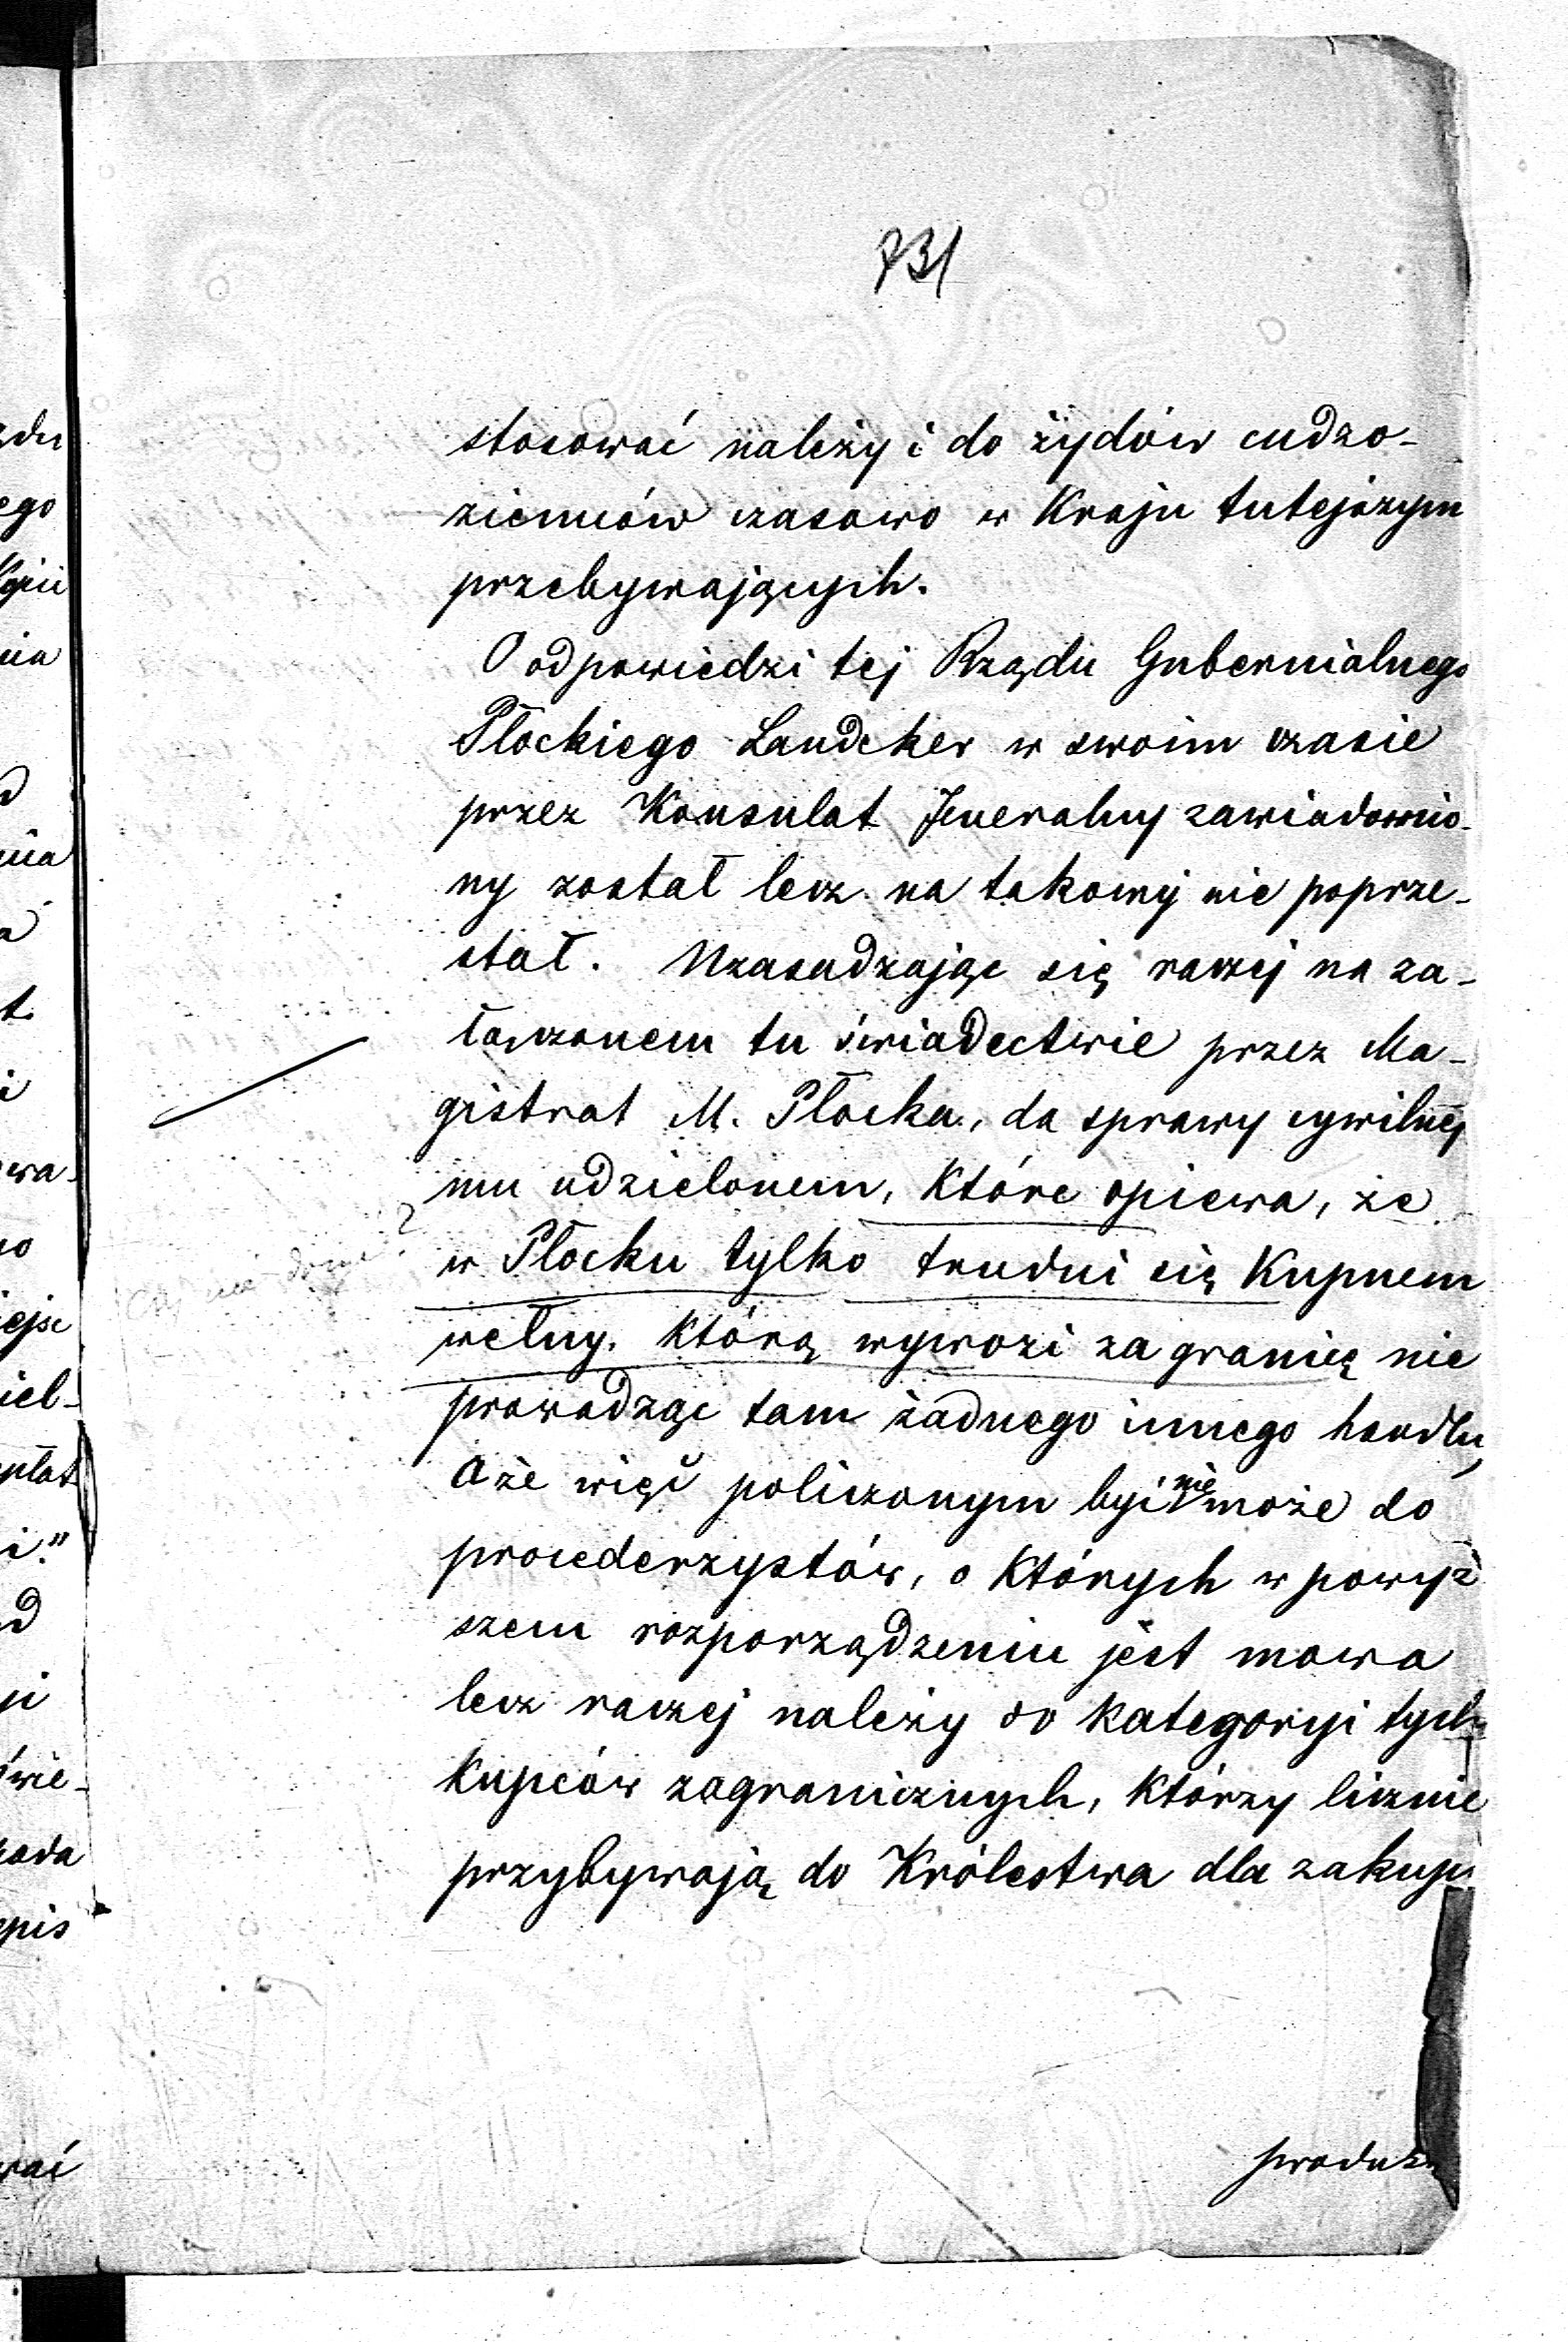 731
stosować należy i do żydów cudzo-
ziemców czasowo w Kraju tutejszym
przebywających.
O odpowiedzi tej Rządu Gubernialnego
Płockiego Landeker w swoim czasie
przez Konsulat Jeneralny zawiadomio-
ny został lecz na takowej nie poprze-
stał. Uzasadzając się raczej na za-
łączonem tu świadectwie przez Ma-
gistrat M. Płocka, do sprawy cywilnej
mu udzielonem, które opiewa, że
w Płocku tylko trudni się Kupnem
wełny, którą wywozi za granicę nie
prowadząc tam żadnego innego handlu,
a że więc policzonym być nie może do
procederzystów, o których w powyż
szem rozporządzeniu jest mowa
lecz raczej należy do kategoryi tych
Kupców zagranicznych, którzy licznie
przybywają do Królestwa dla zakupu